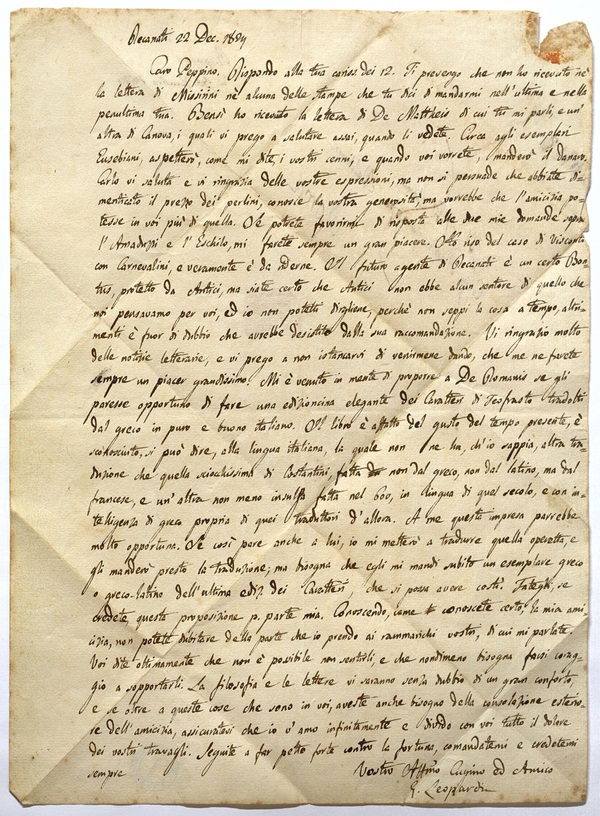 Recanati 22 Dec. 1824
Caro Peppino. Rispondo alla tua carissa dei 12. Ti prevengo che non ho ricevuto nè
la lettera di Missirini nè alcuna delle stampe che tu dici di mandarmi nell'ultima e nella
penultima tua. Bensì ho ricevuto la lettera di De Mattheis di cui tu mi parli, e un'
altra di Canova, i quali vi prego a salutare assai, quando li vedete. Circa agli esemplari
Eusebiani, aspetterò, come mi dite, i vostri cenni, e quando voi vorrete, manderò il danaro.
Carlo vi saluta e vi ringrazia delle vostre espressioni, ma non si persuade che abbiate di-
menticato il prezzo dei perlini, conosce la vostra generosità, ma vorrebbe che l'amicizia po-
tesse in voi più di quella. Se potrete favorirmi di risposta alle due mie domande sopra
l'Amaduzzi e l'Eschilo, mi farete sempre un gran piacere. Ho riso del caso di Visconti
con Carnevalini, e veramente è da riderne. Il futuro agente di Recanati è un certo Bon-
tus, protetto da Antici, ma siate certo che Antici non ebbe alcun sentore di quello che
noi pensavamo per voi, ed io non potetti dirglene, perchè non seppi la cosa a tempo, altri-
menti è fuor di dubbio che avrebbe desistito dalla sua raccomandazione. Vi ringrazio molto
delle notizie letterarie, e vi prego a non istancarvi di venirmene dando, che me ne farete
sempre un piacer grandissimo. Mi è venuto in mente di proporre a De Romanis se gli
paresse opportuno di fare una edizioncina elegante dei Caratteri di Teofrasto tradotti
dal greco in puro e buono italiano. Il libro è affatto del gusto del tempo presente, è
sconosciuto, si può dire, alla lingua italiana, la quale non ne ha, ch'io sappia, altra tra-
duzione che quella sciocchissima di Costantini, fatta non dal greco, non dal latino, ma dal
francese, e un'altra non meno insulsa fatta nel 600, in lingua di quel secolo, e con in-
telligenza di greco propria di quei traduttori d'allora. A me questa impresa parrebbe
molto opportuna. Se così pare anche a lui, io mi metterò a tradurre quella operetta, e
gli manderò presto la traduzione; ma bisogna che egli mi mandi subito un esemplare greco
o greco-latino dell'ultima ediz. dei Caratteri, che si possa avere costì. Fategli, se
credete, questa proposizione p. parte mia. Conoscendo, come conoscete certo, la mia ami-
cizia, non potete dubitare della parte che io prendo ai rammarichi vostri, di cui mi parlate.
Voi dite ottimamente che non è possibile non sentirli, e che nondimeno bisogna farsi corag-
gio a sopportarli. La filosofia e le lettere vi saranno senza dubbio di un gran conforto,
e se oltre a queste cose che sono in voi, aveste anche bisogno della consolazione esterio-
re dell'amicizia, assicuratevi che io v'amo infinitamente e divido con voi tutto il dolore
dei vostri travagli. Seguite a far petto forte contro la fortuna, comandatemi e credetemi
sempre
Vostro Affmo Cugino ed Amico
G. Leopardi